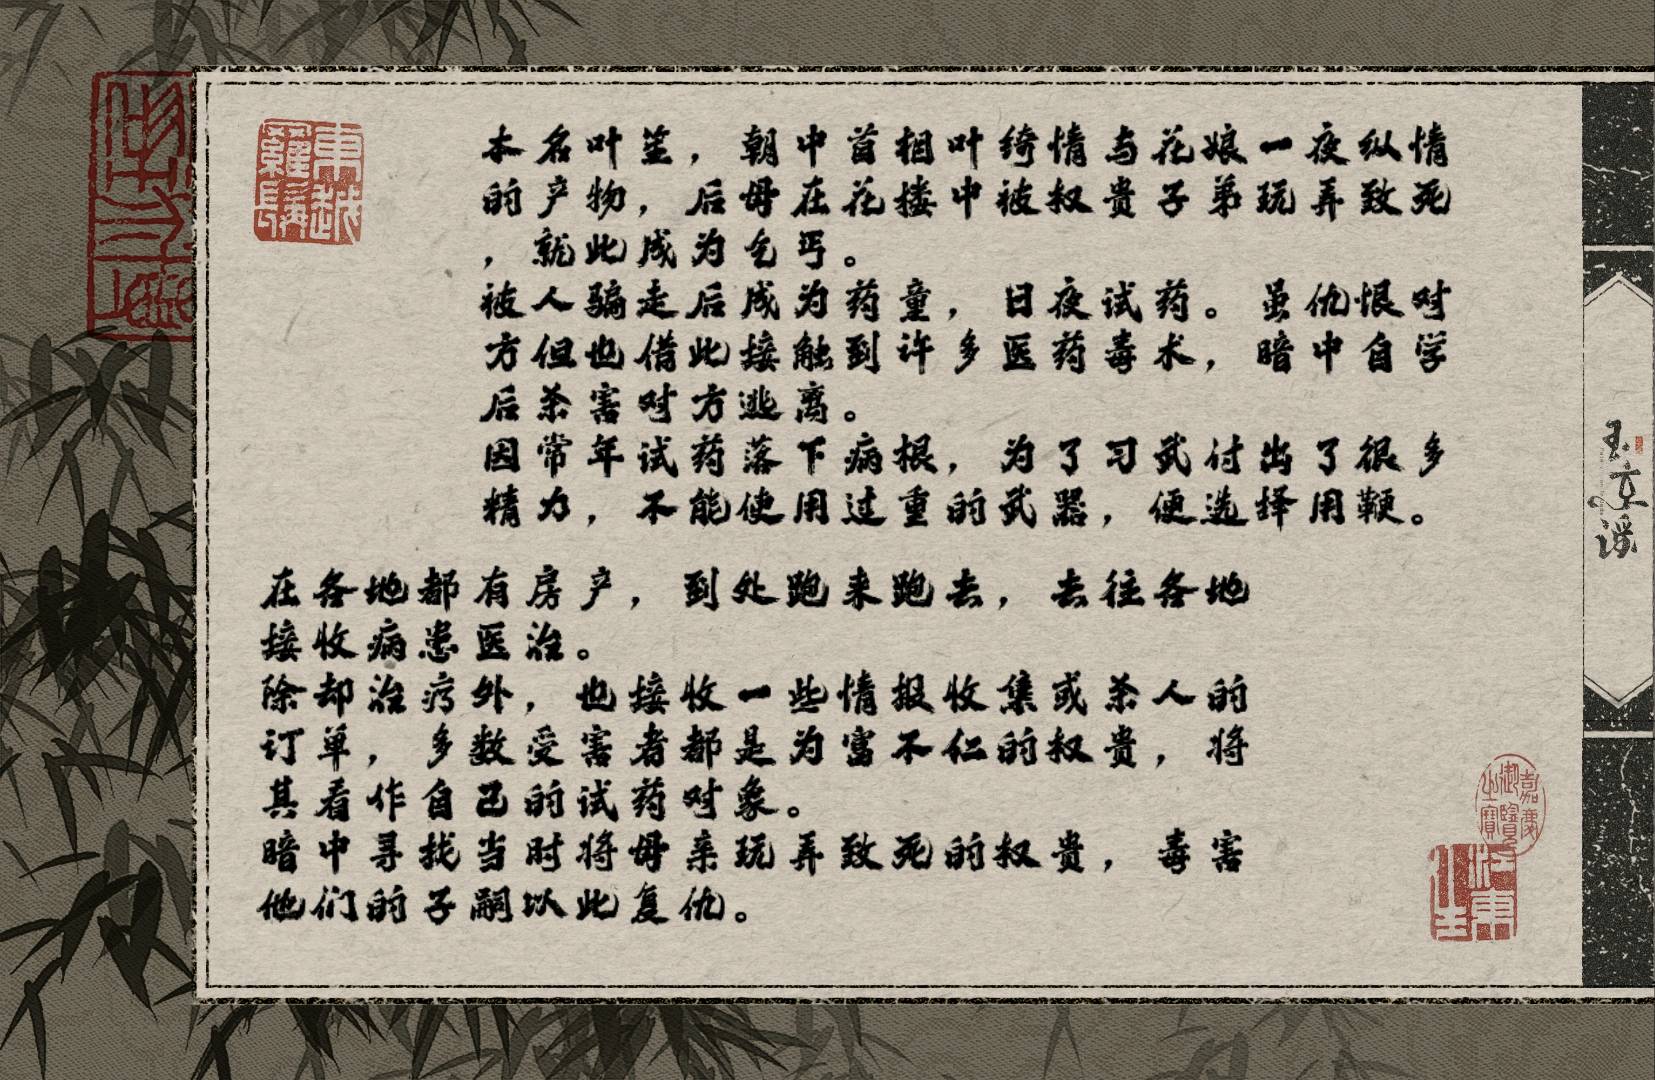 本名叶笙，朝中首相叶绮情与花娘一夜纵情
的产物，后母在花楼中被权贵子弟玩弄致死
，就此成为乞丐。
被人骗走后成为药童，日夜试药。虽仇恨对
方但也借此接触到许多医药毒术，暗中自学
后杀害对方逃离。
因常年试药落下病根，为了习武付出了很多
精力，不能使用过重的武器，便选择用鞭。
在各地都有房产，到处跑来跑去，去往各地
接收病患医治。
除却治疗外，也接收一些情报收集或杀人的
订单，多数受害者都是为富不仁的权贵，将
其看作自己的试药对象。
暗中寻找当时将母亲玩弄致死的权贵，毒害
他们的子嗣以此复仇。
玉京谣
嘉慶御覽之寶